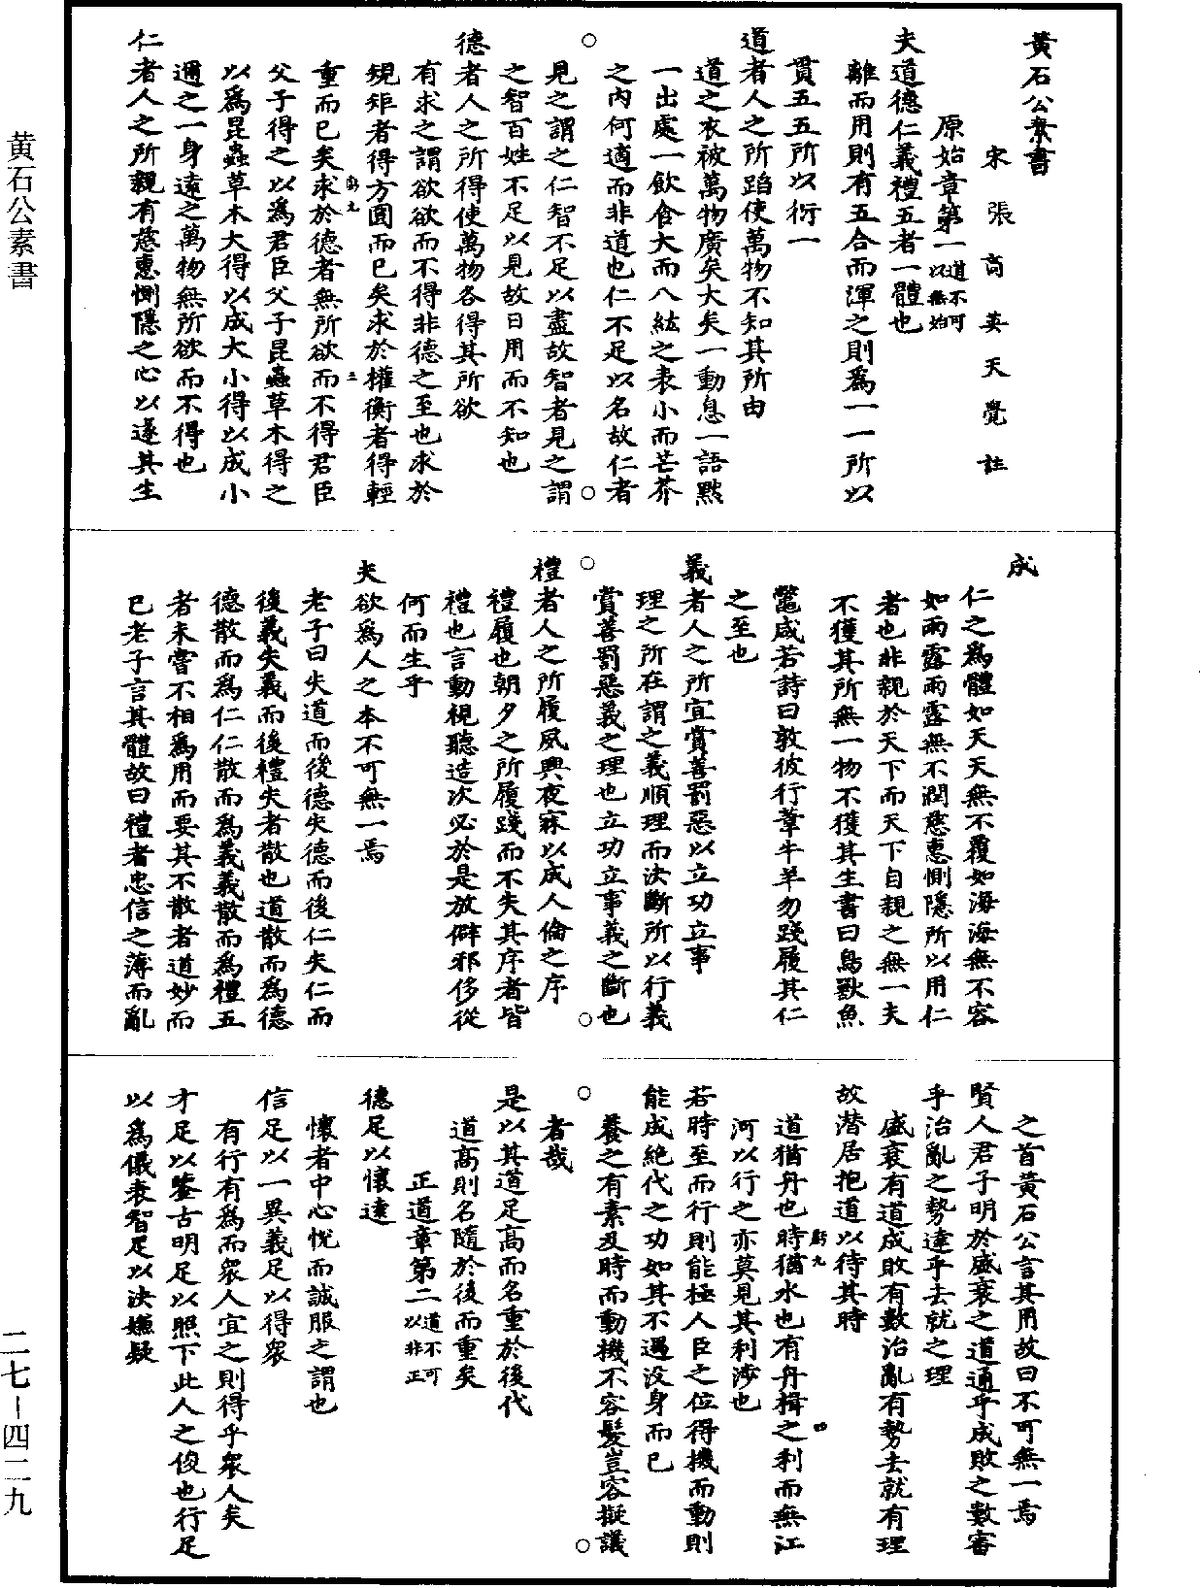 黃石公素書
宋張商英天覺註
原始章第一道不可以無始
夫道德仁義禮五者一體也
離而用則有五合而渾之則為一一所以
貫五五所以衍一
道者人之所蹈使萬物不知其所由
道之衣被萬物廣矣大矣一動息一語默
一出處一飲食大而八紘之表小而芒芥
之內何適而非道也仁不足以名故仁者
見之謂之仁智不足以盡故智者見之謂
之智百姓不足以見故日用而不知也
德者人之所得使萬物各得其所欲
有求之謂欲欲而不得非德之至也求於
規矩者得方圓而已矣求於權衡者得輕
重而已矣求於德者無所欲而不得君臣
父子得之以為君臣父子昆蟲草木得之
以為昆蟲草木大得以成大小得以成小
邇之一身遠之萬物無所欲而不得也
仁者人之所親有慈惠惻隱之心以遂其生
成
仁之為體如天天無不覆如海海無不容
如雨露雨露無不潤慈惠惻隱所以用仁
者也非親於天下而天下自親之無一夫
不獲其所無一物不獲其生書曰鳥獸魚
鼈咸若詩曰敦彼行葦牛羊勿踐履其仁
之至也
義者人之所宜賞善罰惡以立功立事
理之所在謂之義順理而決斷所以行義
賞善罰惡義之理也立功立事義之斷也
禮者人之所履夙興夜寐以成人倫之序
禮履也朝夕之所履踐而不失其序者皆
禮也言動視聽造次必於是放僻邪侈從
何而生乎
夫欲為人之本不可無一焉
老子曰失道而後德失德而後仁失仁而
後義失義而後禮失者散也道散而為德
德散而為仁仁散而為義義散而為禮五
者未嘗不相為用而要其不散者道妙而
已老子言其體故曰禮者忠信之薄而亂
之首黃石公言其用故曰不可無一焉
賢人君子明於盛衰之道通乎成敗之數審
乎治亂之勢達乎去就之理
盛衰有道成敗有數治亂有勢去就有理
故潛居抱道以待其時
道猶舟也時猶水也有舟楫之利而無江
河以行之亦莫見其利涉也
若時至而行則能極人臣之位得機而動則
能成絕代之功如其不遇没身而已
養之有素及時而動機不容髮豈容擬議
者哉
是以其道足高而名重於後代
道高則名隨於後而重矣
正道章第二道不可以非正
德足以懷遠
懷者中心悅而誠服之謂也
信足以一異義足以得眾
有行有為而眾人宜之則得乎眾人矣
才足以鑒古明足以照下此人之俊也行足
以為儀表智足以決嫌疑
黄石公素書
二七－四二九